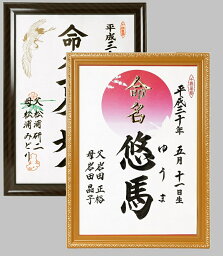 平成三十年 五月十一日生
命名
悠馬
ゆうま
父 岩田 正裕
母 岩田 晶子
平成三
命
父 松浦研二
母 松浦みどり